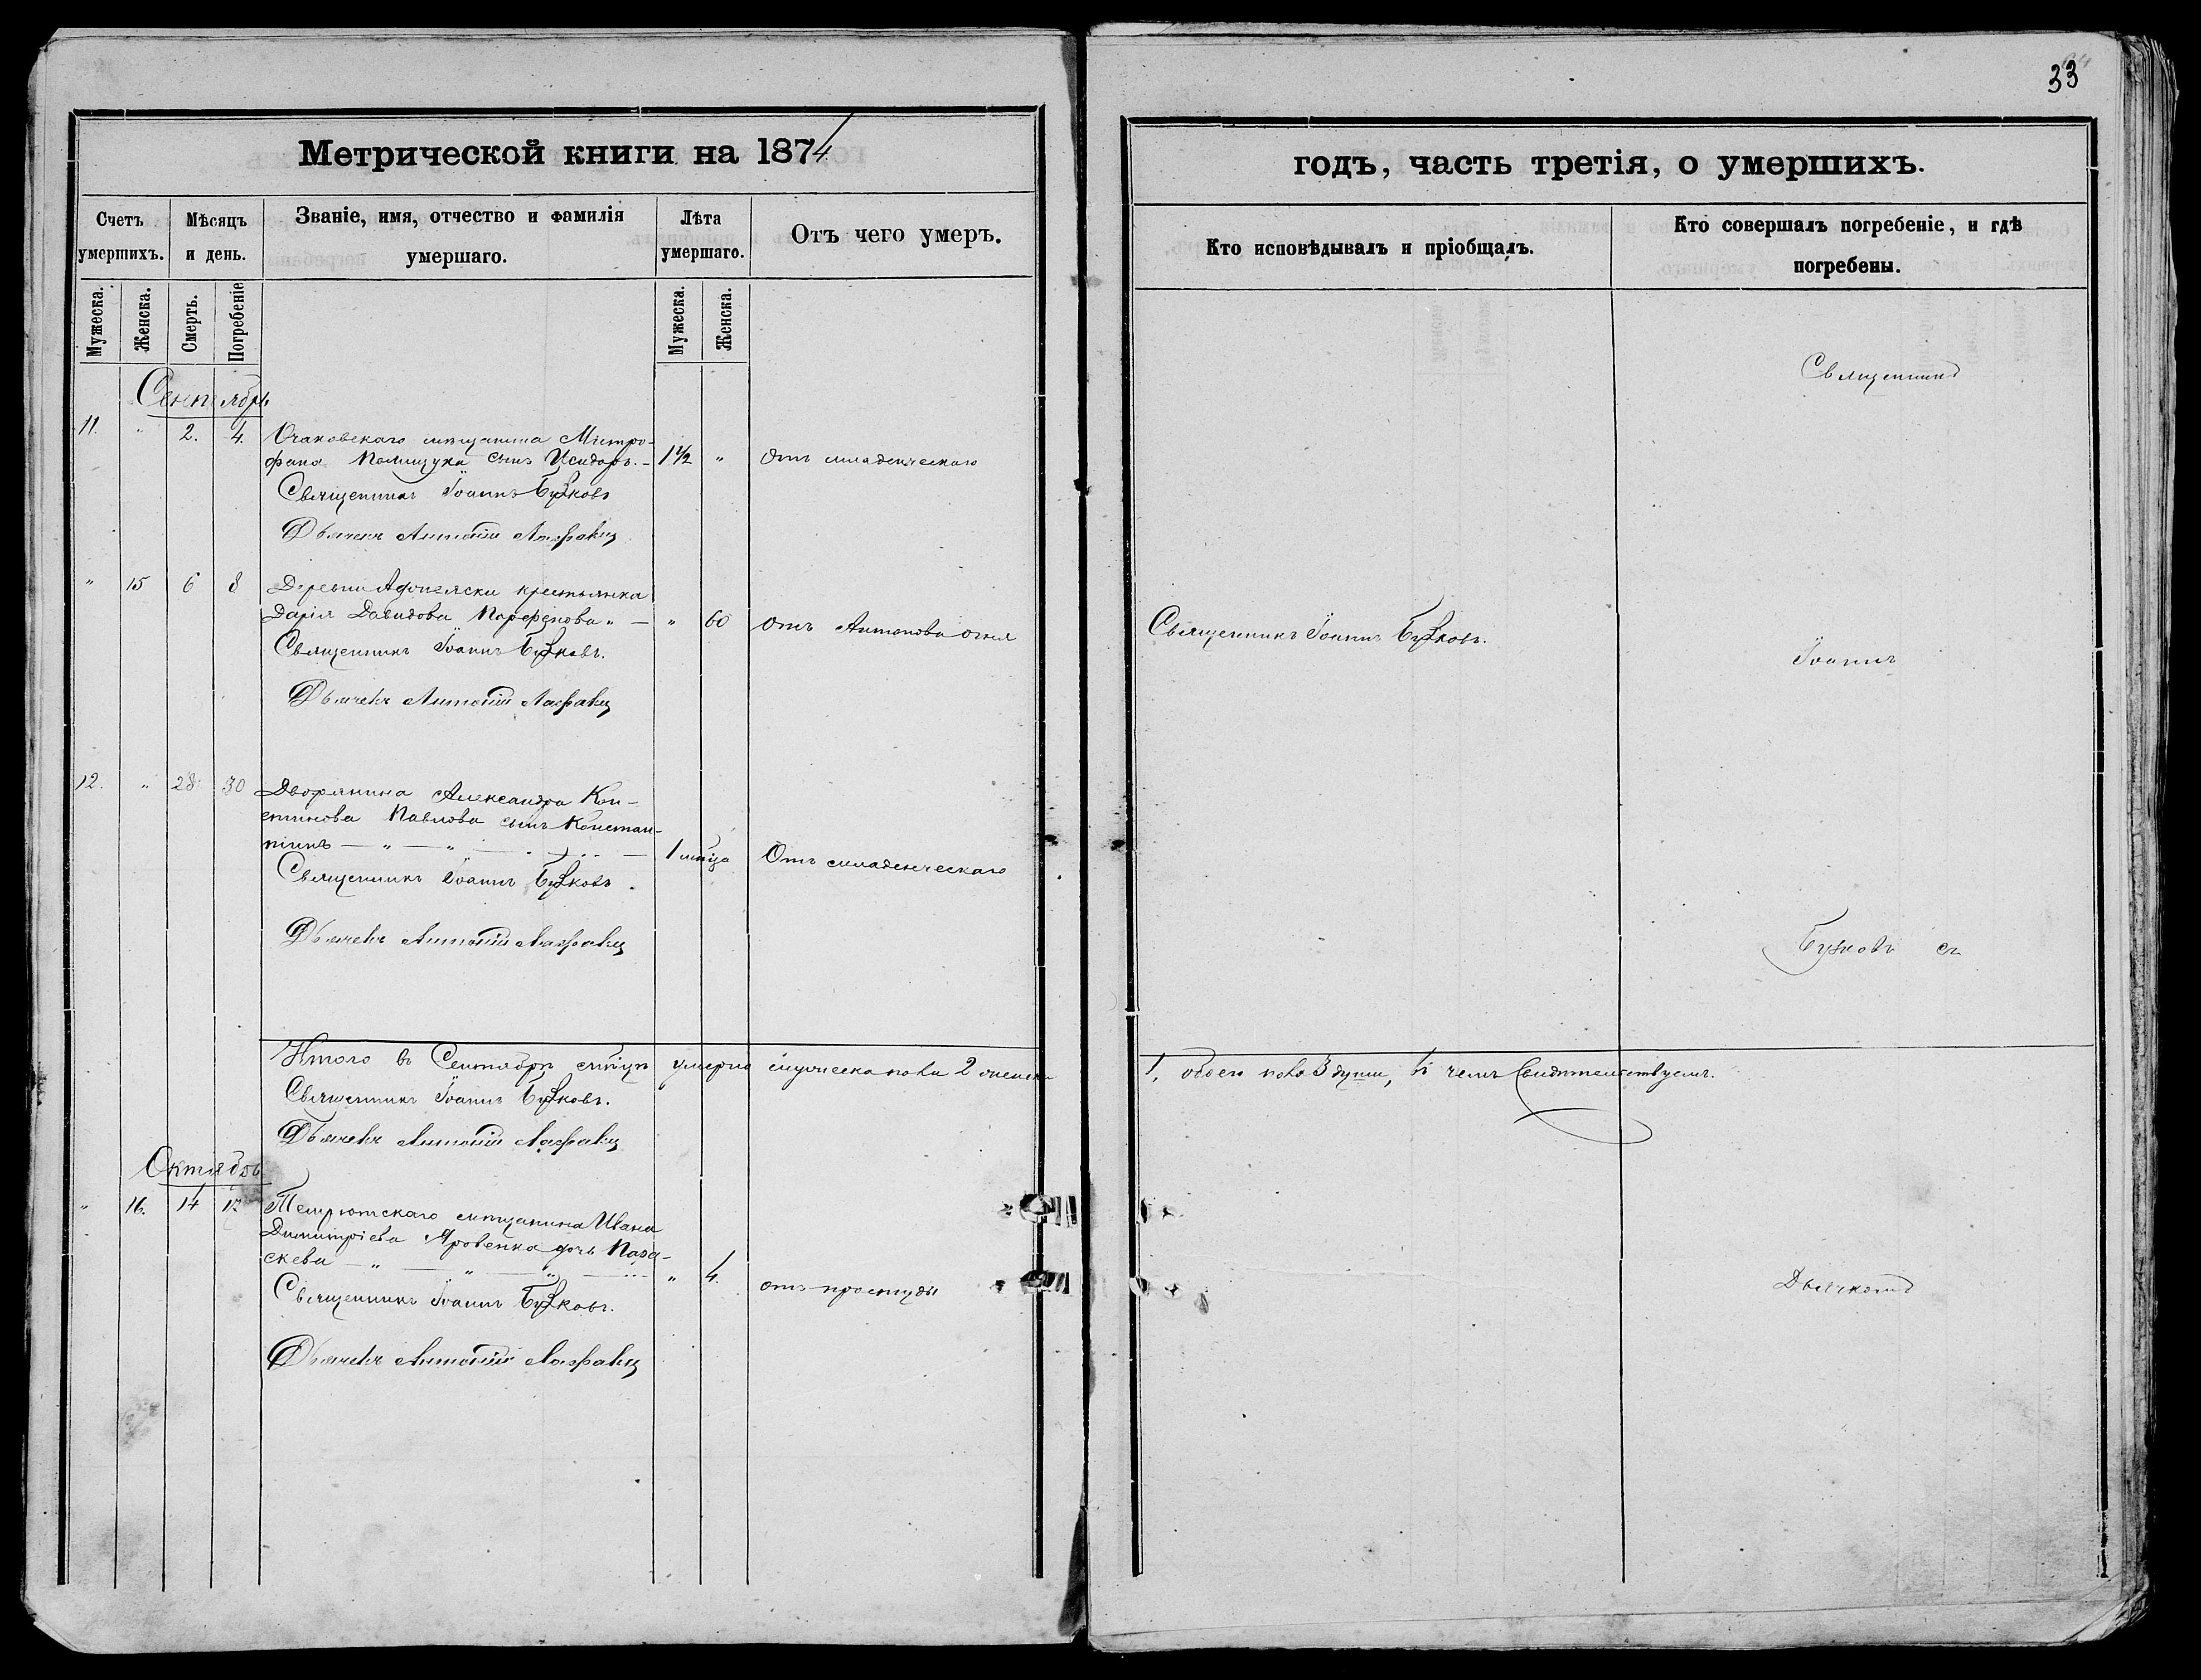 33
Метрической книги на 1874
годъ, часть третія, о умершихъ.
Счетъ умершихъ.
Мѣсяцъ и день.
Званіе, имя, отчество и фамилія умершаго.
Лѣта умершаго.
Отъ чего умеръ.
Кто исповѣдывалъ и пріобщалъ.
Кто совершалъ погребеніе, и гдѣ погребены.
Мужеска.
Женска.
Смерть.
Погребеніе
Мужеска.
Женска.
Сентябрь
Священникъ
11. " 2. 4. Очаковскаго мѣщанина Митро-
фана Полищука сынъ Исидоръ. - 1 1/2 " Отъ младенческаго
Священникъ Іоаннъ
Дьячекъ Антоній
" 15 6 8 Деревни крестьянка
Дарія Давидова Парфенова " — " 60 Отъ Антонова огня
Священникъ Іоаннъ
Священникъ Іоаннъ
Іоаннъ
Дьячекъ Антоній
12. " 28 30 Дворянина Александра Кон-
стинова Павлова сынъ Констан-
тинъ — " — " — 1 мѣсяца Отъ младенческаго
Священникъ Іоаннъ
Дьячекъ Антоній
съ
Итого въ Сентябрѣ мѣсяцѣ умерло мужеска пола 2 женска
1, обоего пола 3 души, въ чемъ свидѣтельствуемъ.
Священникъ Іоаннъ
Дьячекъ Антоній
Октябрь
" 16. 14 Темрютскаго мѣщанина Ивана
Димитріева Яровенка дочь Пара-
скева — " — " — " — " 4. отъ простуды
Дьячкомъ
Священникъ Іоаннъ
Дьячекъ Антоній